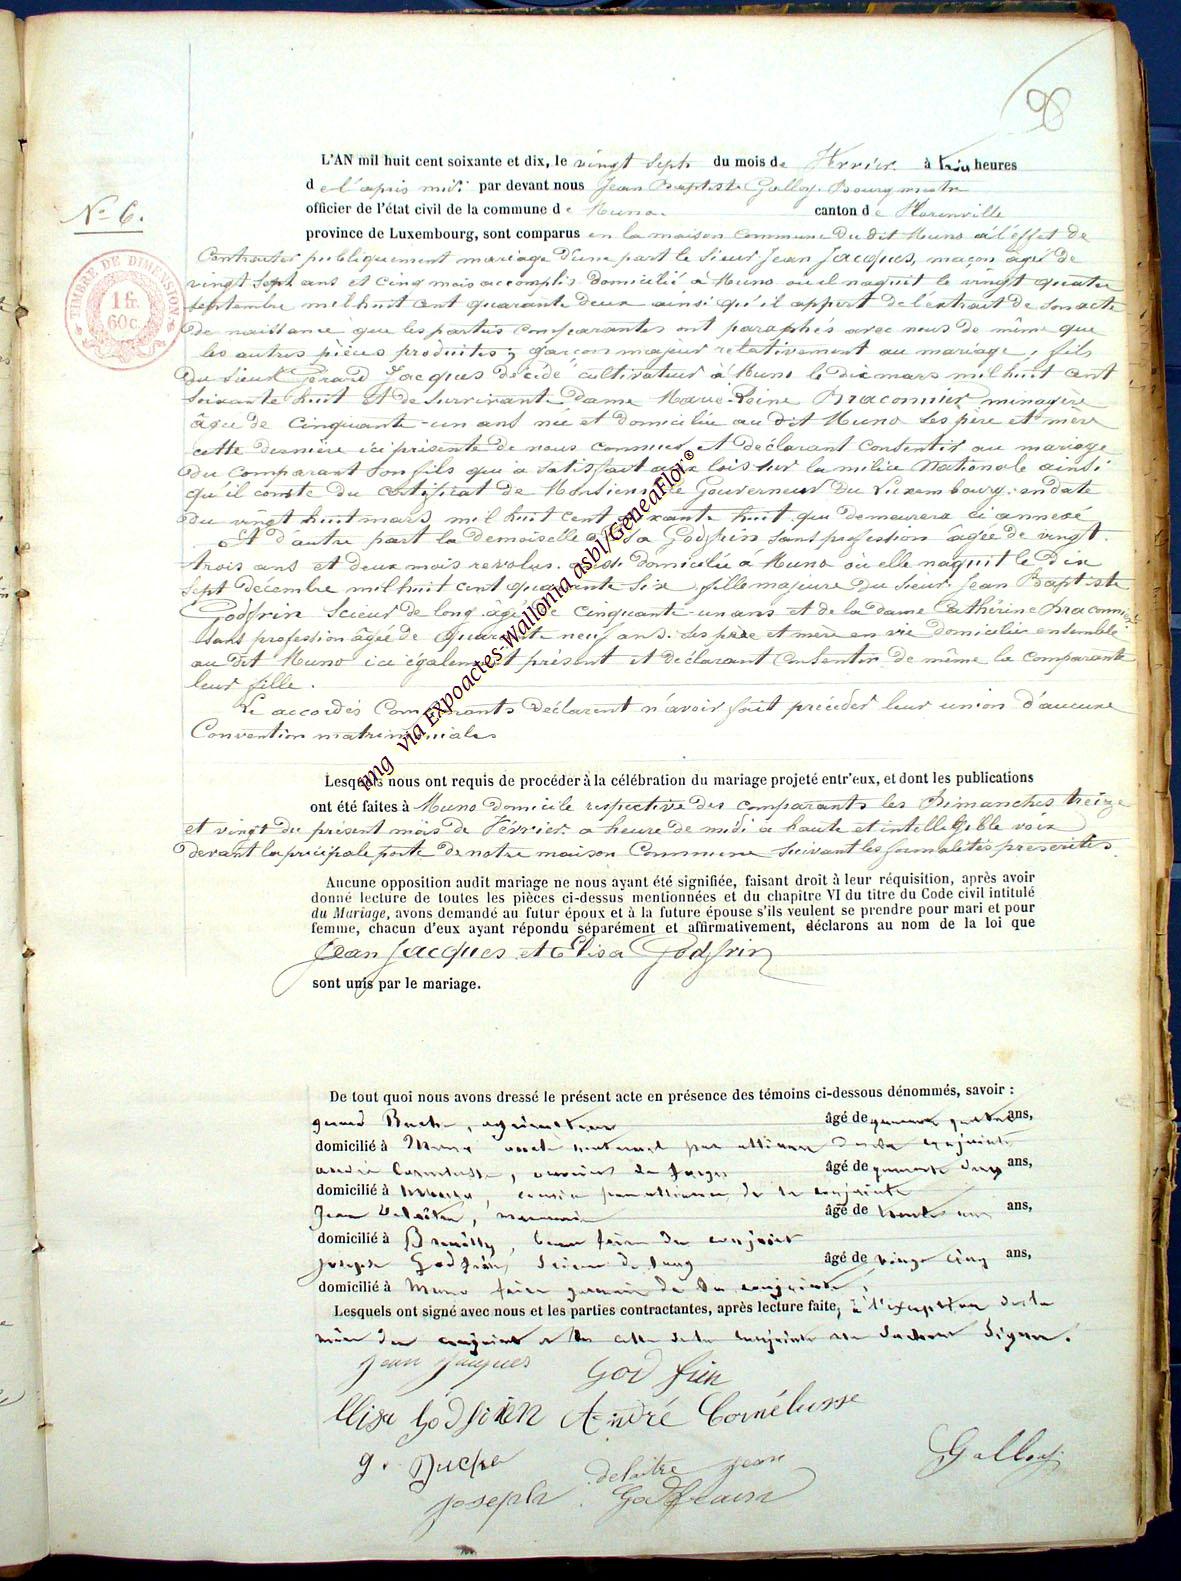 98
L'AN mil huit cent soixante et dix, le vingt Sept du mois de Février à trois heures
de l'après midi par devant nous Jean Baptiste Galloy. Bourgmestre
officier de l'état civil de la commune de Muno. canton de Florenville
province de Luxembourg, sont comparus en la maison Commune du dit Muno à l'effet de
N° 6.
TIMBRE DE DIMENSION
1 fr.
60 c.
Contracter publiquement mariage d'une part le Sieur Jean Jacques, maçon âgé de
vingt sept ans et Cinq mois accomplis domicilié à Muno où il naquit le vingt quatre
septembre mil huit cent quarante deux ainsi qu'il appert de l'extrait de son acte
de naissance que les parties comparantes ont paraphés avec nous de même que
les autres pièces produites; garçon majeur relativement au mariage, fils
du Sieur Gérard Jacques décédé cultivateur à Muno le dix mars mil huit cent
soixante huit et de survivante Dame Marie-Reine Braconnier menagère
âgée de Cinquante-un ans née et domiciliée au dit Muno Ses père et mère
cette dernière ici présente de nous connue et déclarant Consentir au mariage
du Comparant son fils qui a satisfait aux lois sur la milice Nationale ainsi
qu'il conste du Certificat de Monsieur le Gouverneur du Luxembourg en date
du vingt huit mars mil huit cent soixante huit qui demeurera ci annexé
Et d'autre part la demoiselle Elisa Godfrin sans profession âgée de vingt
trois ans et deux mois révolus. domiciliée à Muno où elle naquit le Dix
sept décembre mil huit cent quarante Six fille majeure du Sieur Jean Baptiste
Godfrin Scieur de long âgé de Cinquante-un ans et de la dame Cathérine Braconnier
Sans profession âgée de Quarante neuf ans. Ses père et mère en vie domiciliés ensemble
au dit Muno ici également présent et déclarant Consentir de même la comparante
leur fille.
Le accordés Comparants déclarent n'avoir fait précéder leur union d'aucune
Convention matrimoniales
img via Expoactes-Wallonia asbl/GeneaFloi®
Lesquels nous ont requis de procéder à la célébration du mariage projeté entr'eux, et dont les publications
ont été faites à Muno domicile respective des comparants les Dimanches treize
et vingt du présent mois de Février a heure de midi à haute et intelligible voix
devant la principale porte de notre maison Commune Suivant les formalités prescrites.
Aucune opposition audit mariage ne nous ayant été signifiée, faisant droit à leur réquisition, après avoir
donné lecture de toutes les pièces ci-dessus mentionnées et du chapitre VI du titre du Code civil intitulé
du Mariage, avons demandé au futur époux et à la future épouse s'ils veulent se prendre pour mari et pour
femme, chacun d'eux ayant répondu séparément et affirmativement, déclarons au nom de la loi que
Jean Jacques et Elisa Godfrin
sont unis par le mariage.
De tout quoi nous avons dressé le présent acte en présence des témoins ci-dessous dénommés, savoir :
âgé de quarante quatre ans,
domicilié à Muno oncle maternel par alliance de la conjointe
André Cornélusse, ouvrier de forges âgé de quarante ans,
domicilié à cousin par alliance de la conjointe
Jean Delaitre, âgé de trente ans,
domicilié à beau frère du conjoint
Joseph Godfrin, Scieur de long âgé de vingt cinq ans,
domicilié à Muno frère germain de la conjointe,
Lesquels ont signé avec nous et les parties contractantes, après lecture faite, à l'exception de la
mère du conjoint et de celle de la conjointe Signer.
Jean Jacques God frin
Elisa Godfrin André Cornélusse
g. Galloy
delaitre jean
joseph Godfrain